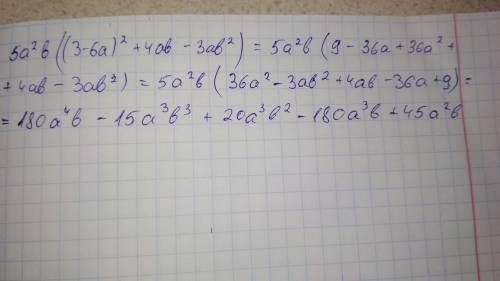 5a²b((3-6a)² + 4ab - 3ab²) = 5a²b (9 - 36a + 36a² +
+ 4ab - 3ab²) = 5a²b (36a² - 3ab² + 4ab - 36a + 9) =
= 180a⁴b - 15a³b³ + 20a³b² - 180a³b + 45a²b